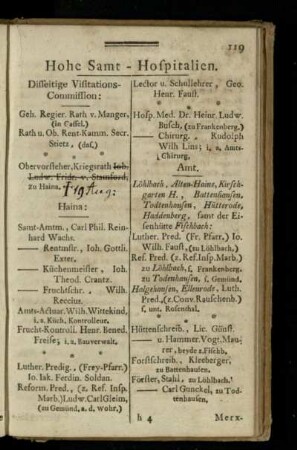 119
Hohe Samt - Hospitalien.
Disseitige Visitations-
Commission:
Geh. Regier. Rath v. Manger,
(in Cassel.)
Rath u. Ob. Rent-Kamm. Secr.
Stietz, (das.)
Obervorsteher, Kriegsrath Joh.
Ludw. Fridr. v. Stamford,
zu Haina. † 19 Aug:
Haina:
Samt-Amtm., Carl Phil. Rein-
hard Wachs.
— Rentmstr., Joh. Gottli.
Exter.
— Küchenmeister, Joh.
Theod. Crantz.
— Fruchtschr., Wilh.
Reccius.
Amts-Actuar, Wilh. Wittekind,
i. z. Küch. Kontrolleur.
Frucht-Kontroll. Henr. Bened.
Freise, i. z. Bauverwalt.
Luther. Predig., (Frey-Pfarr.)
Jo. Jak. Ferdin. Soldan.
Reform. Pred., (z. Ref. Insp.
Marb.) Ludw. Carl Gleim,
(zu Gemünd, a. d. Wohr.)
Lector u. Schullehrer, Geo.
Henr. Faust.
Hosp. Med. Dr. Heinr. Ludw.
Busch, (zu Frankenberg.)
— Chirurg., Rudolph
Wilh Lins; i. z. Amts-
Chirurg.
Amt.
Löhlbach, Alten-Haina, Kirsch-
garten H., Battenhausen,
Todtenhausen, Hütterode,
Haddenberg, samt der Ei-
senhütte Fischbach:
Luther. Pred. (Fr. Pfarr.) Jo.
Wilh. Faust, (zu Löhlbach.)
Ref. Pred. (z. Ref. Insp. Marb.)
zu Löhlbach, s. Frankenberg.
zu Todenhausen, s. Gemünd.
Halgehausen, Ellenrode, Luth.
Pred., (z. Conv. Rauschenb.)
s. unt. Rosenthal.
Hüttenschreib., Lic. Günst.
— u. Hammer. Vogt, Mau-
rer, beyde z. Fischb.
Forstschreib., Kleeberger,
zu Battenhausen.
Förster, Stahl, zu Löhlbach.
— Carl Gunckel, zu Tod-
tenhausen,
h 4
Merx-